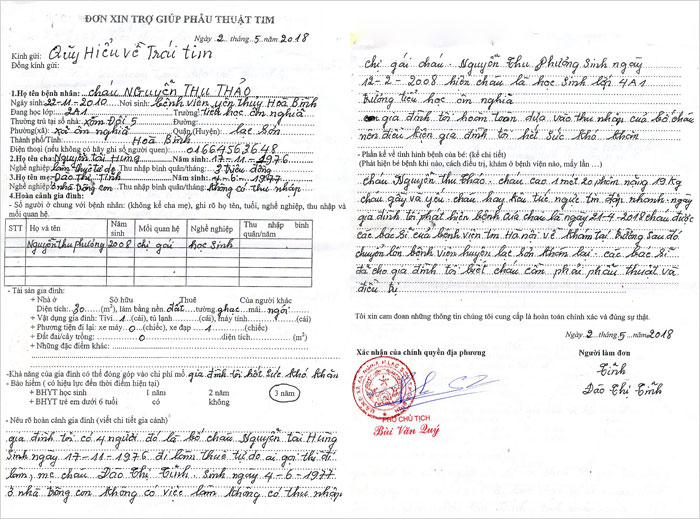 ĐƠN XIN TRỢ GIÚP PHẪU THUẬT TIM
Ngày 2 tháng 5 năm 2018
Kính gửi: Quỹ Hiểu về Trái tim
Đồng kính gửi:
1.Họ tên bệnh nhân: cháu NGUYỄN THU THẢO
Ngày sinh: 22-11-2010 Nơi sinh: bệnh viện yên thủy Hoà Bình
Đang học lớp: 2A1 Trường: tiểu học ân nghĩa
Thường trú tại số nhà: xóm Đội 5 Đường:
Phường(xã): xã ân nghĩa Quận(Huyện): lạc Sơn
Thành phố/Tỉnh: Hoà Bình
Điện thoại (nếu không có hãy ghi số người quen): 01664563648
2.Họ tên cha: Nguyễn tài Hùng Năm sinh: 17-11-1976
Nghề nghiệp: làm thuê tự do Thu nhập bình quân/tháng: 3 triệu đồng
3.Họ tên mẹ: Đào Thị Tĩnh Năm sinh: 4-6-1977
Nghề nghiệp: ở nhà trông con Thu nhập bình quân/tháng: không có thu nhập
4.Hoàn cảnh gia đình:
- Số người ở chung với bệnh nhân: (không kể cha mẹ), ghi rõ họ tên, tuổi, nghề nghiệp, thu nhập và
mối quan hệ.
STT Họ và tên Năm sinh Mối quan hệ Nghề nghiệp Thu nhập bình quân/năm
Nguyễn thu phường 2008 chị gái học Sinh
- Tài sản gia đình:
+ Nhà ở Sở hữu Thuê Của người khác
Diện tích: 30 (m²), làm bằng nền: đất tường: gạch mái: ngói
+ Vật dụng gia đình: Tivi 1 (cái), tủ lạnh (cái), máy tính (cái)
+ Phương tiện đi lại: xe máy 0 (chiếc), xe đạp 1 (chiếc)
+ Đất đai/cây trồng: 0 diện tích (m²)
+ Những đặc điểm khác:
-Khả năng của gia đình có thể đóng góp vào chi phí mổ: gia đình tôi hết Sức khó khăn
- Bảo hiểm ( có hiệu lực đến thời điểm hiện tại)
+ BHYT học sinh 1 năm 2 năm 3 năm
+ BHYT trẻ em dưới 6 tuổi có không
- Nêu rõ hoàn cảnh gia đình (viết chi tiết gia cảnh)
gia đình tôi có 4 người đó là bố cháu Nguyễn tài Hùng
Sinh ngày 17-11-1976 đi làm thuê tự do ai gọi thì đi
làm, mẹ cháu Đào Thị Tĩnh. Sinh ngày 4-6-1977
ở nhà trông con không có việc làm không có thu nhập
chị gái cháu. Nguyễn Thu Phường Sinh ngày
12-2-2008 hiện cháu là học Sinh lớp 4A1
trường tiểu học ân nghĩa
gia đình tôi hoàn toàn dựa vào thu nhập của bố cháu
nên điều kiện gia đình tôi hết Sức khó khăn
- Phần kể về tình hình bệnh của bé: (kể chi tiết)
(Phát hiện bé bệnh khi nào, cách điều trị, khám ở bệnh viện nào, mấy lần …)
Cháu Nguyễn thu thảo. cháu cao 1 mét 20 phân nặng 19 kg
cháu gầy và yếu. cháu hay kêu tức ngực tim đập nhanh. ngay
gia đình tôi phát hiện bệnh của cháu là ngày 21-4-2018 cháu được
các bác Sĩ của bệnh viện tim Hà nội về khám tại trường Sau đó
chuyển lên bệnh viện huyện lạc Sơn khám lại. các bác Sĩ
đã cho gia đình tôi biết cháu cần phải phẫu thuật và
điều trị
Tôi xin cam đoan những thông tin chúng tôi cung cấp là hoàn toàn chính xác và đúng sự thật.
Ngày 2 tháng 5 năm 2018
Xác nhận của chính quyền địa phương Người làm đơn
Tĩnh
Đào Thị Tĩnh
PHÓ CHỦ TỊCH
Bùi Văn Quý